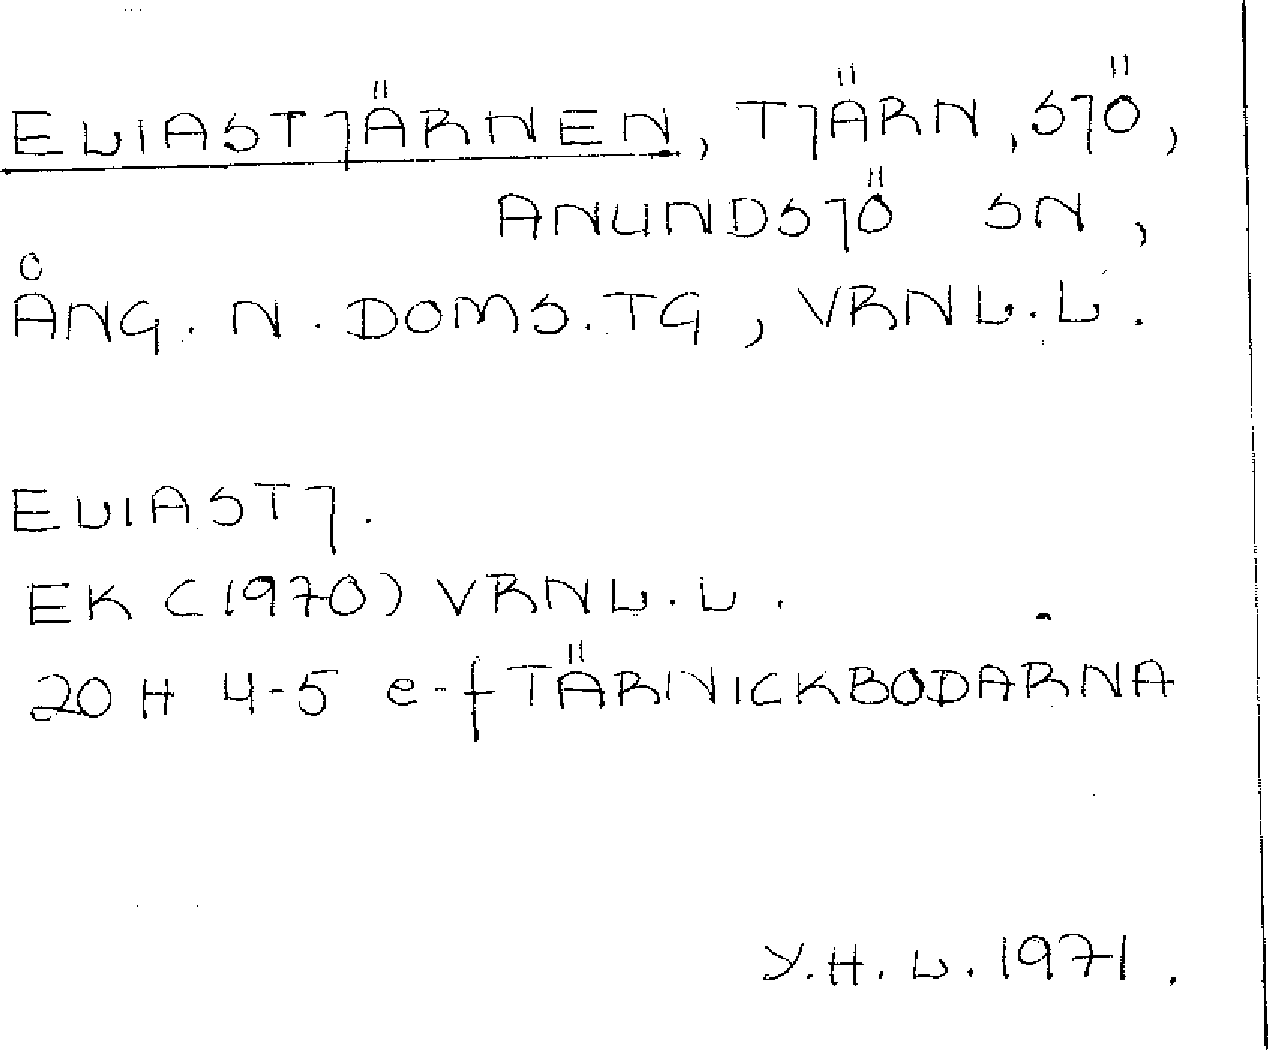 ELIASTJÄRNEN, TJÄRN, SJÖ,
ANUNDSJÖ SN,
ÅNG. N. DOMS. TG, VRNL. L.
ELIASTJ.
EK (1970) VRNL. L.
20 H 4-5 e-f TÄRNICKBODARNA
Y. H. L. 1971.